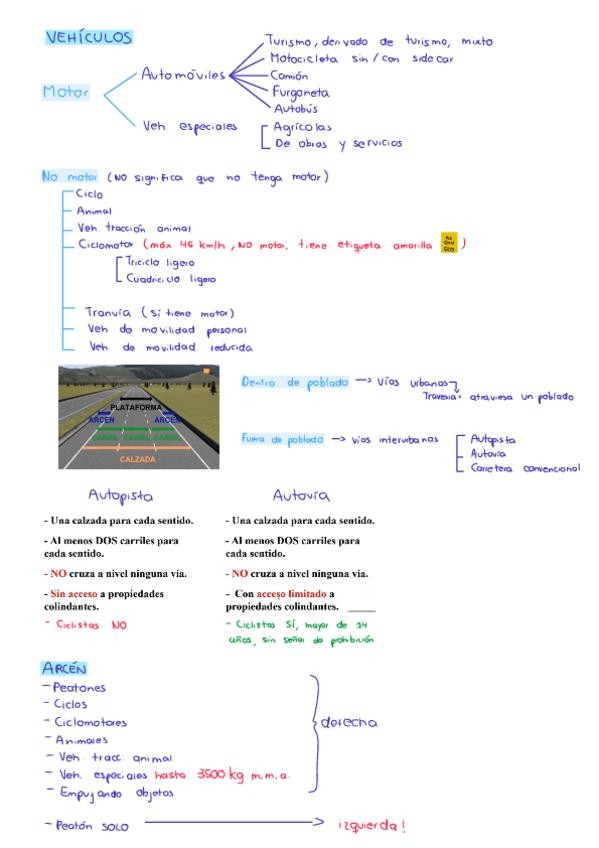 VEHÍCULOS
Turismo, derivado de turismo, mixto
Motocicleta sin/con sidecar
Automóviles
Camión
Motor
Furgoneta
Autobús
Veh. especiales
Agrícolas
De obras y servicios
No motor (NO significa que no tenga motor)
Ciclo
Animal
Veh. tracción animal
Ciclomotor (máx 45 km/h, NO motor, tiene etiqueta amarilla )
Triciclo ligero
Cuadriciclo ligero
Tranvía (Sí tiene motor)
Veh de movilidad personal
Veh. de movilidad reducida
PLATAFORMA
ARCÉN ARCÉN
CARRIL CARRIL CARRIL
CALZADA
Dentro de poblado → vías urbanas
Travesía: atraviesa un poblado
Fuera de poblado → vías interurbanas
Autopista
Autovía
Carretera convencional
Autopista
- Una calzada para cada sentido.
- Al menos DOS carriles para
cada sentido.
- NO cruza a nivel ninguna vía.
- Sin acceso a propiedades
colindantes.
- Ciclistas NO
Autovía
- Una calzada para cada sentido.
- Al menos DOS carriles para
cada sentido.
- NO cruza a nivel ninguna vía.
- Con acceso limitado a
propiedades colindantes.
- Ciclistas SÍ, mayor de 14
años, sin señal de prohibición
ARCÉN
- Peatones
- Ciclos
- Ciclomotores
- Animales
- Veh. tracc. animal
- Veh. especiales hasta 3500 kg m.m.a.
- Empujando objetos
derecha
- Peatón SOLO → izquierda!